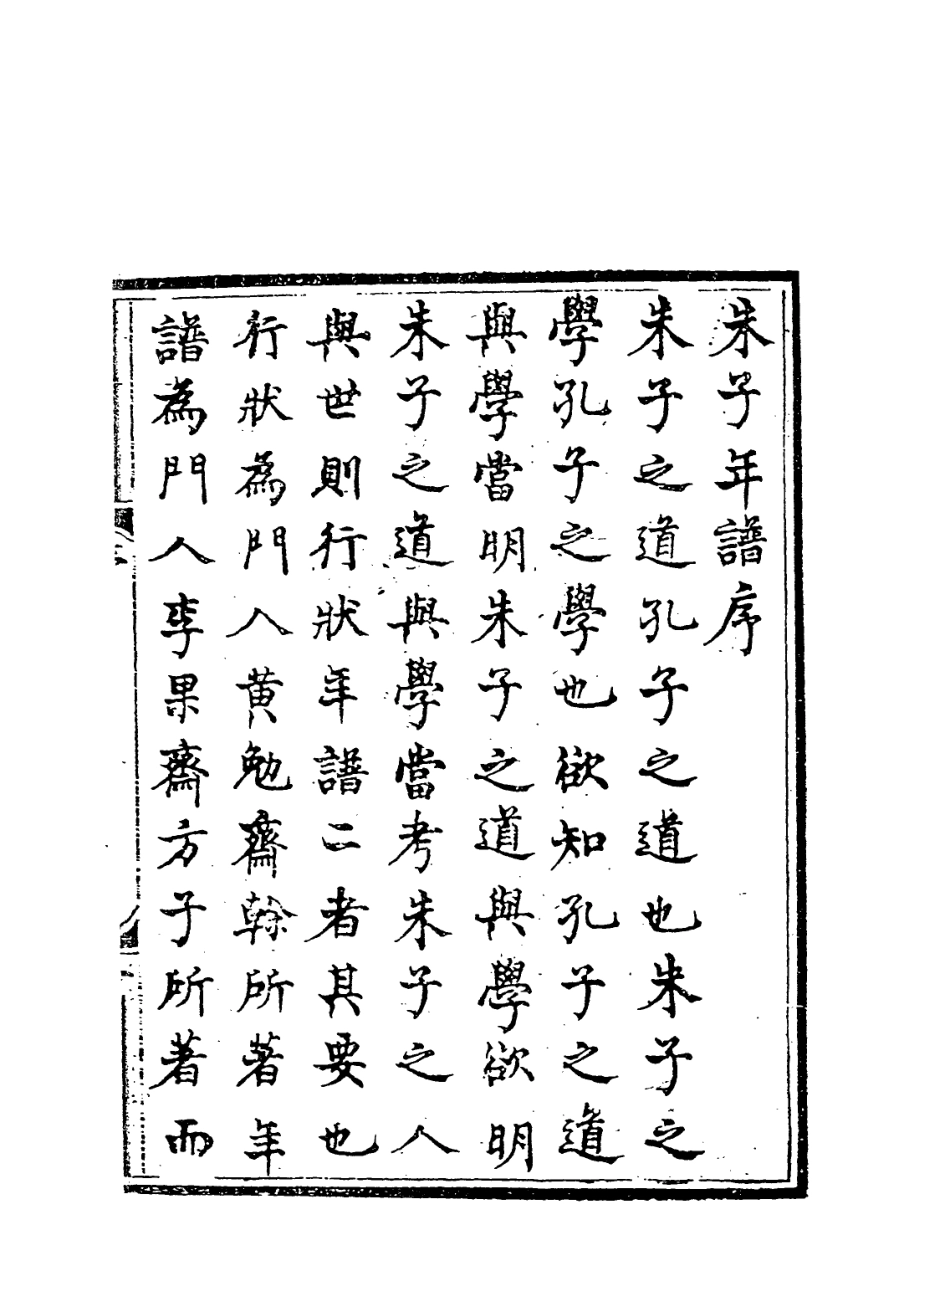 朱子年譜序
朱子之道孔子之道也朱子之
學孔子之學也欲知孔子之道
與學當明朱子之道與學欲明
朱子之道與學當考朱子之人
與世則行狀年譜二者其要也
行狀為門人黃勉齋榦所著年
譜為門人李果齋方子所著而